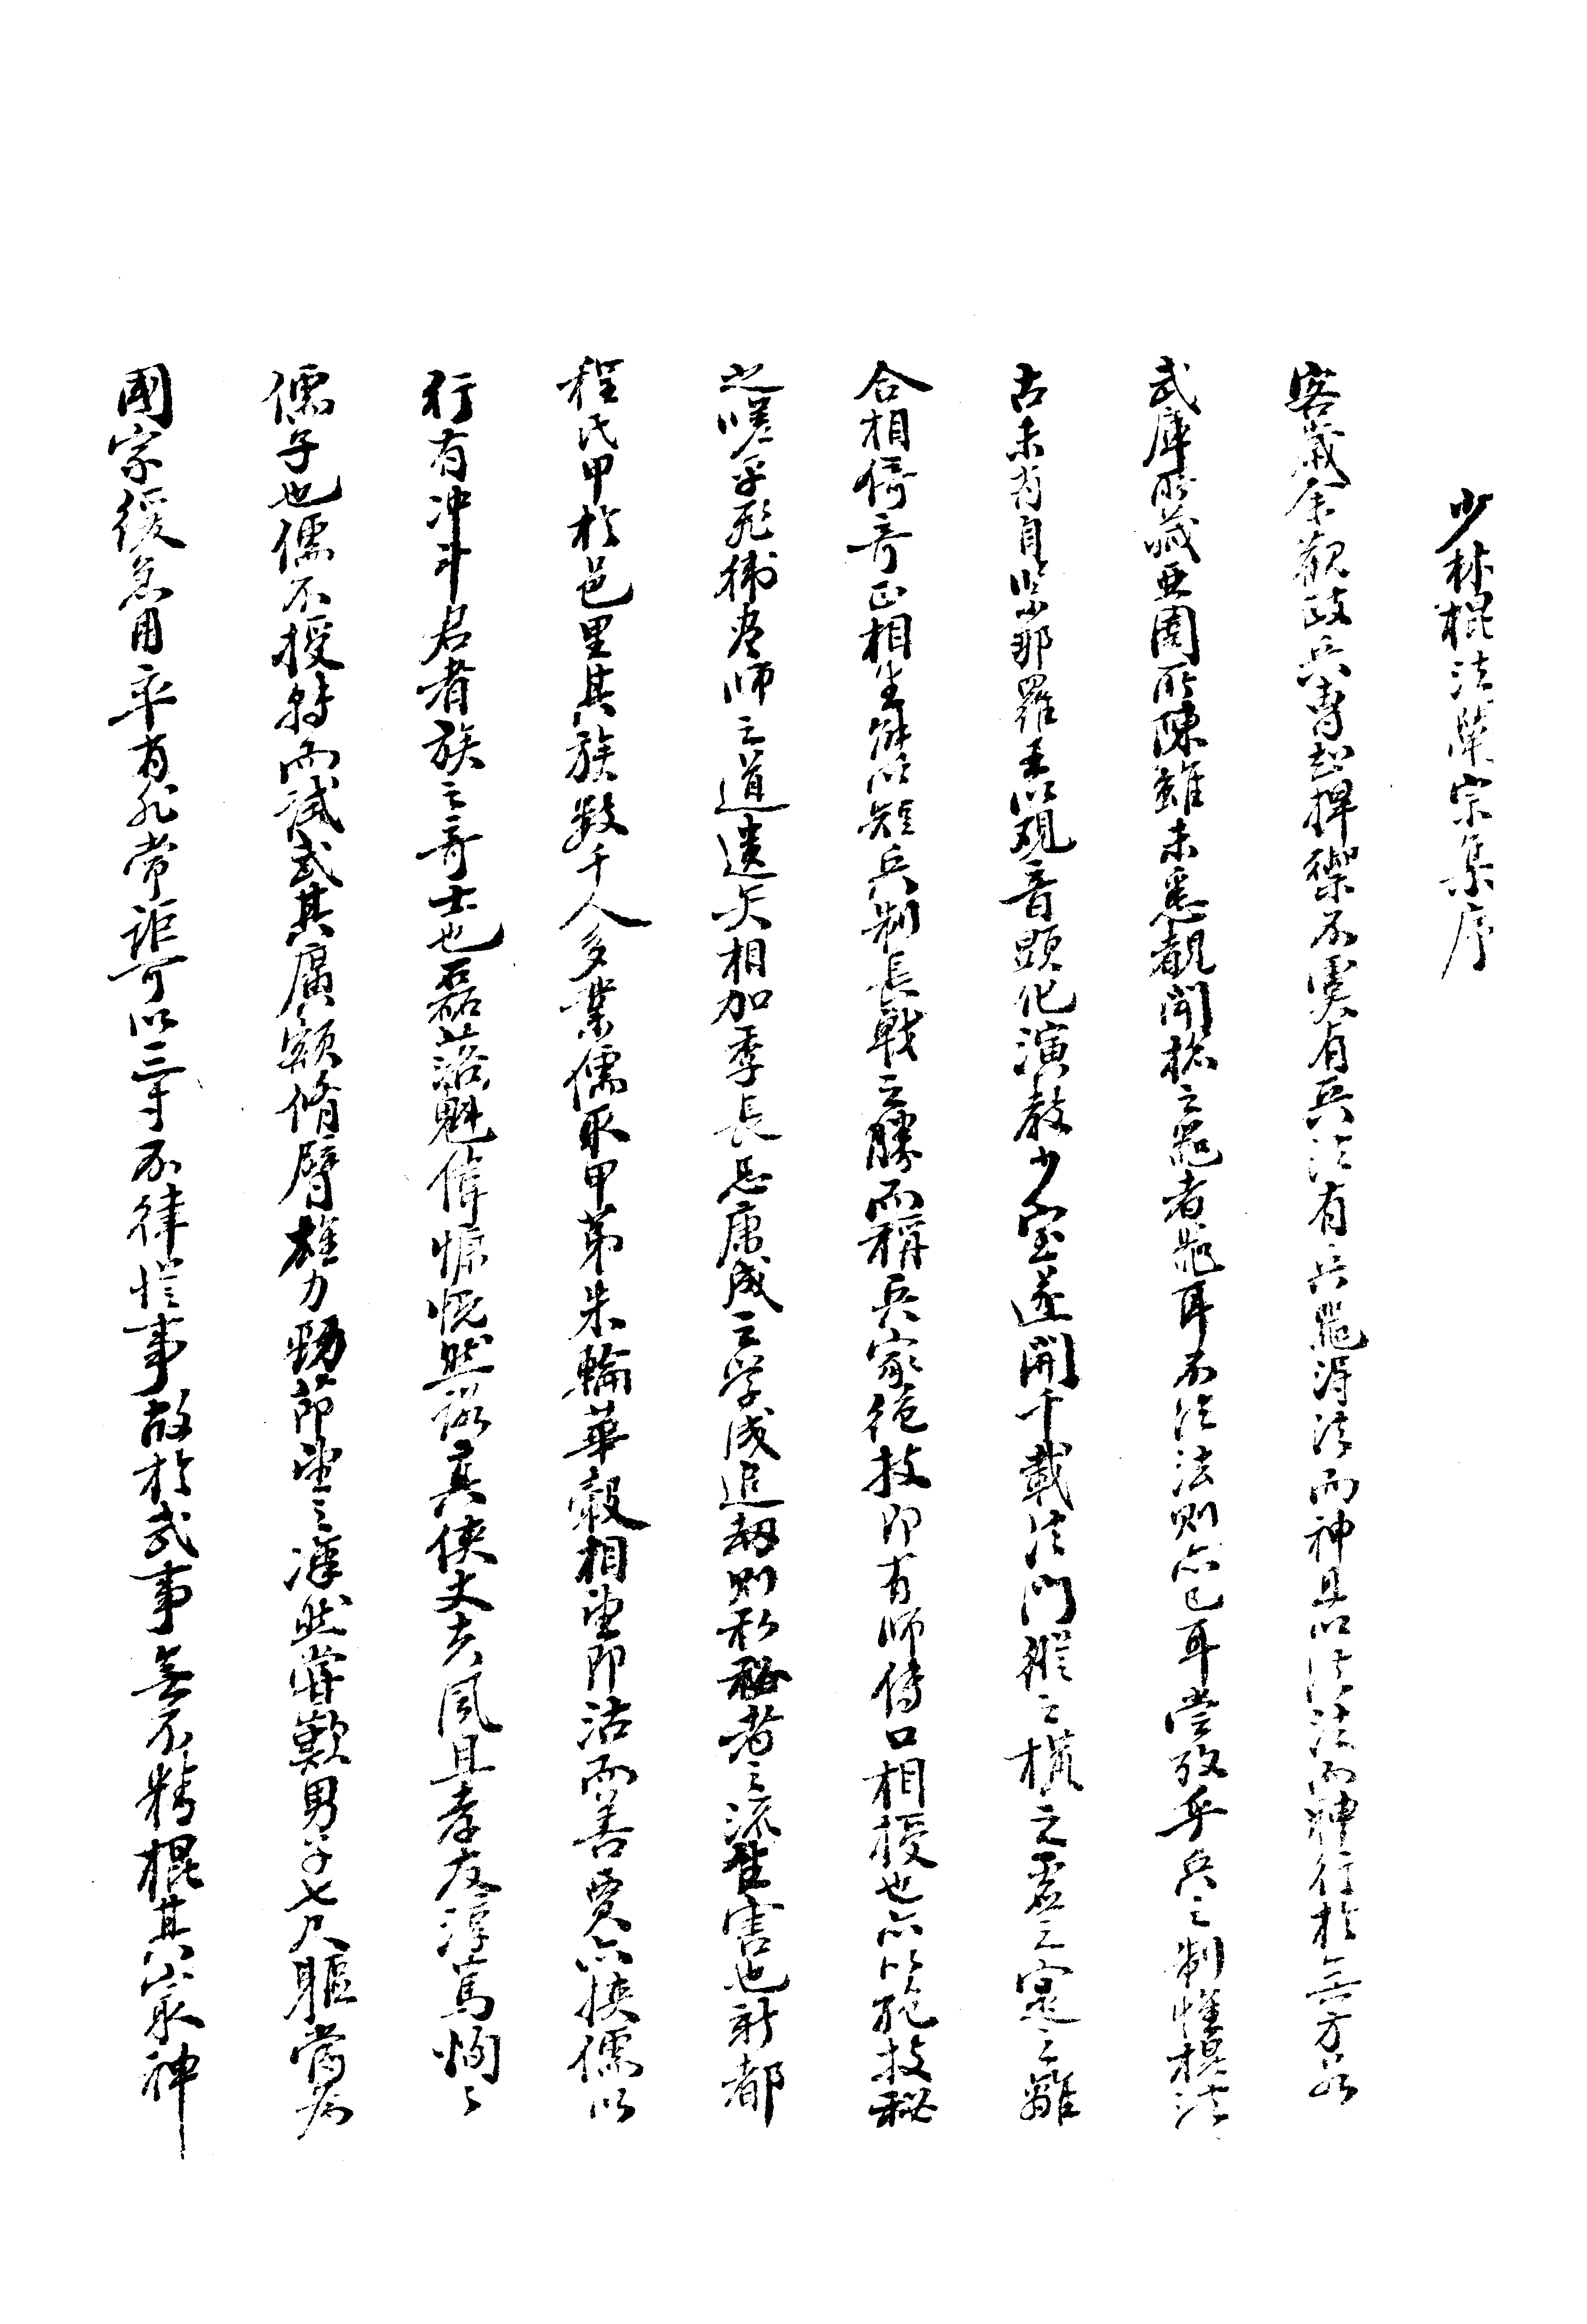 少林棍法闡宗集序
客歲余觀政兵曹知捍禦不虞有兵法有兵器得法而神且以法法而神行於無方如
武庫所藏亞圉所陳雖未悉覩聞核之器者器耳不法法則亦已耳嘗攷乎兵之制惟棍法
古未有自緊那羅王以觀音顯化演教少室遂開千載法門從之橫之虛之寔之離
合相倚奇正相生能以短兵制長戟之勝而稱兵家絶技即有師傳口相授也亦以絶技秘
之嗟乎飛衛盡師之道遺矢相加季長忌康成之學成追劫則私秘者之流生害也新都
程氏甲於邑里其族數千人多業儒取甲第朱輪華轂相望即沽而善賈亦挾儒以
行有冲斗君者族之奇士也磊落魁偉慷慨然諾真俠丈夫風且孝友淳篤恂々
儒子也儒不授特而試武其廣額脩臂雄力勁節望之凜然嘗歎男子七尺軀當為
國家緩急用卒有非常詎可以三寸不律當事故於武事無不精棍其最神